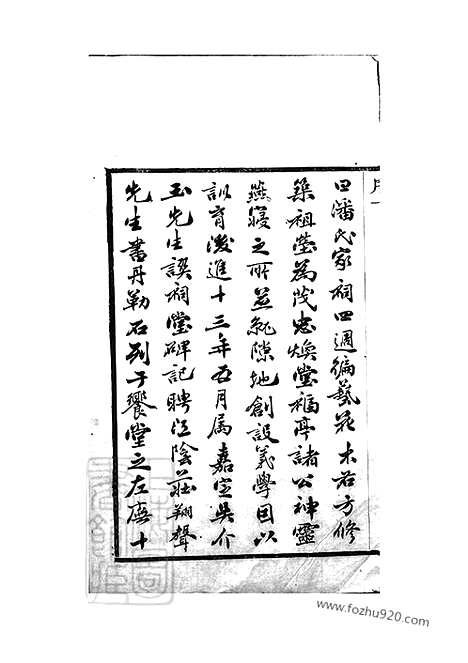 曰潘氏家祠四週編藝花木右方修
築祖瑩為茂忠煥堂福亭諸公神靈
燕寢之所並就隙地創設義學因以
訓育後進十三年五月属嘉定吳介
玉先生譔祠堂碑記聘江陰莊翔聲
先生書丹勒石列于饗堂之左廡十
www.fozhu920.com